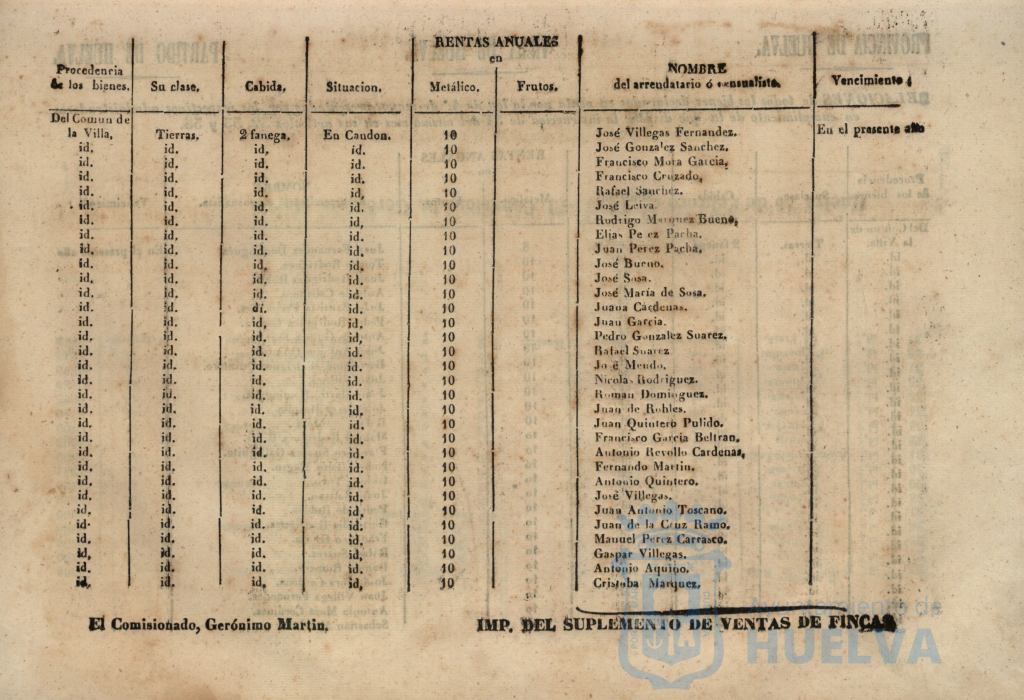 RENTAS ANUALES
en
Procedencia de los bienes. Su clase. Cabida. Situacion. Metálico. Frutos. NOMBRE del arrendatario ó censualista. Vencimiento
Del Comun de
la Villa. Tierras. 2 fanega. En Caudon. 10 José Villegas Fernandez. En el presente año
id. id. id. id. 10 José Gonzalez Sanchez.
id. id. id. id. 10 Francisco Mora Garcia.
id. id. id. id. 10 Francisco Cruzado.
id. id. id. id. 10 Rafael Sanchez.
id. id. id. id. 10 José Leiva.
id. id. id. id. 10 Rodrigo Marquez Bueno.
id. id. id. id. 10 Elias Perez Pacha.
id. id. id. id. 10 Juan Perez Pacha.
id. id. id. id. 10 José Bueno.
id. id. id. id. 10 José Sosa.
id. id. id. id. 10 José María de Sosa.
id. id. di. id. 10 Juana Cárdenas.
id. id. id. id. 10 Juan Garcia.
id. id. id. id. 10 Pedro Gonzalez Suarez.
id. id. id. id. 10 Rafael Suarez
id. id. id. id. 10 José Mendo.
id. id. id. id. 10 Nicolas Rodriguez.
id. id. id. id. 10 Roman Dominguez.
id. id. id. id. 10 Juan de Robles.
id. id. id. id. 10 Juan Quintero Pulido.
id. id. id. id. 10 Francisco Garcia Beltran.
id. id. id. id. 10 Antonio Revollo Cardenas.
id. id. id. id. 10 Fernando Martin.
id. id. id. id. 10 Antonio Quintero.
id. id. id. id. 10 José Villegas.
id. id. id. id. 10 Juan Antonio Toscano.
id. id. id. id. 10 Juan de la Cruz Ramo.
id. id. id. id. 10 Manuel Perez Carrasco.
id. id. id. id. 10 Gaspar Villegas.
id. id. id. id. 10 Antonio Aquino.
id. id. id. id. 10 Cristoba Marquez.
El Comisionado, Gerónimo Martin. IMP. DEL SUPLEMENTO DE VENTAS DE FINCAS
Ayuntamiento de
HUELVA